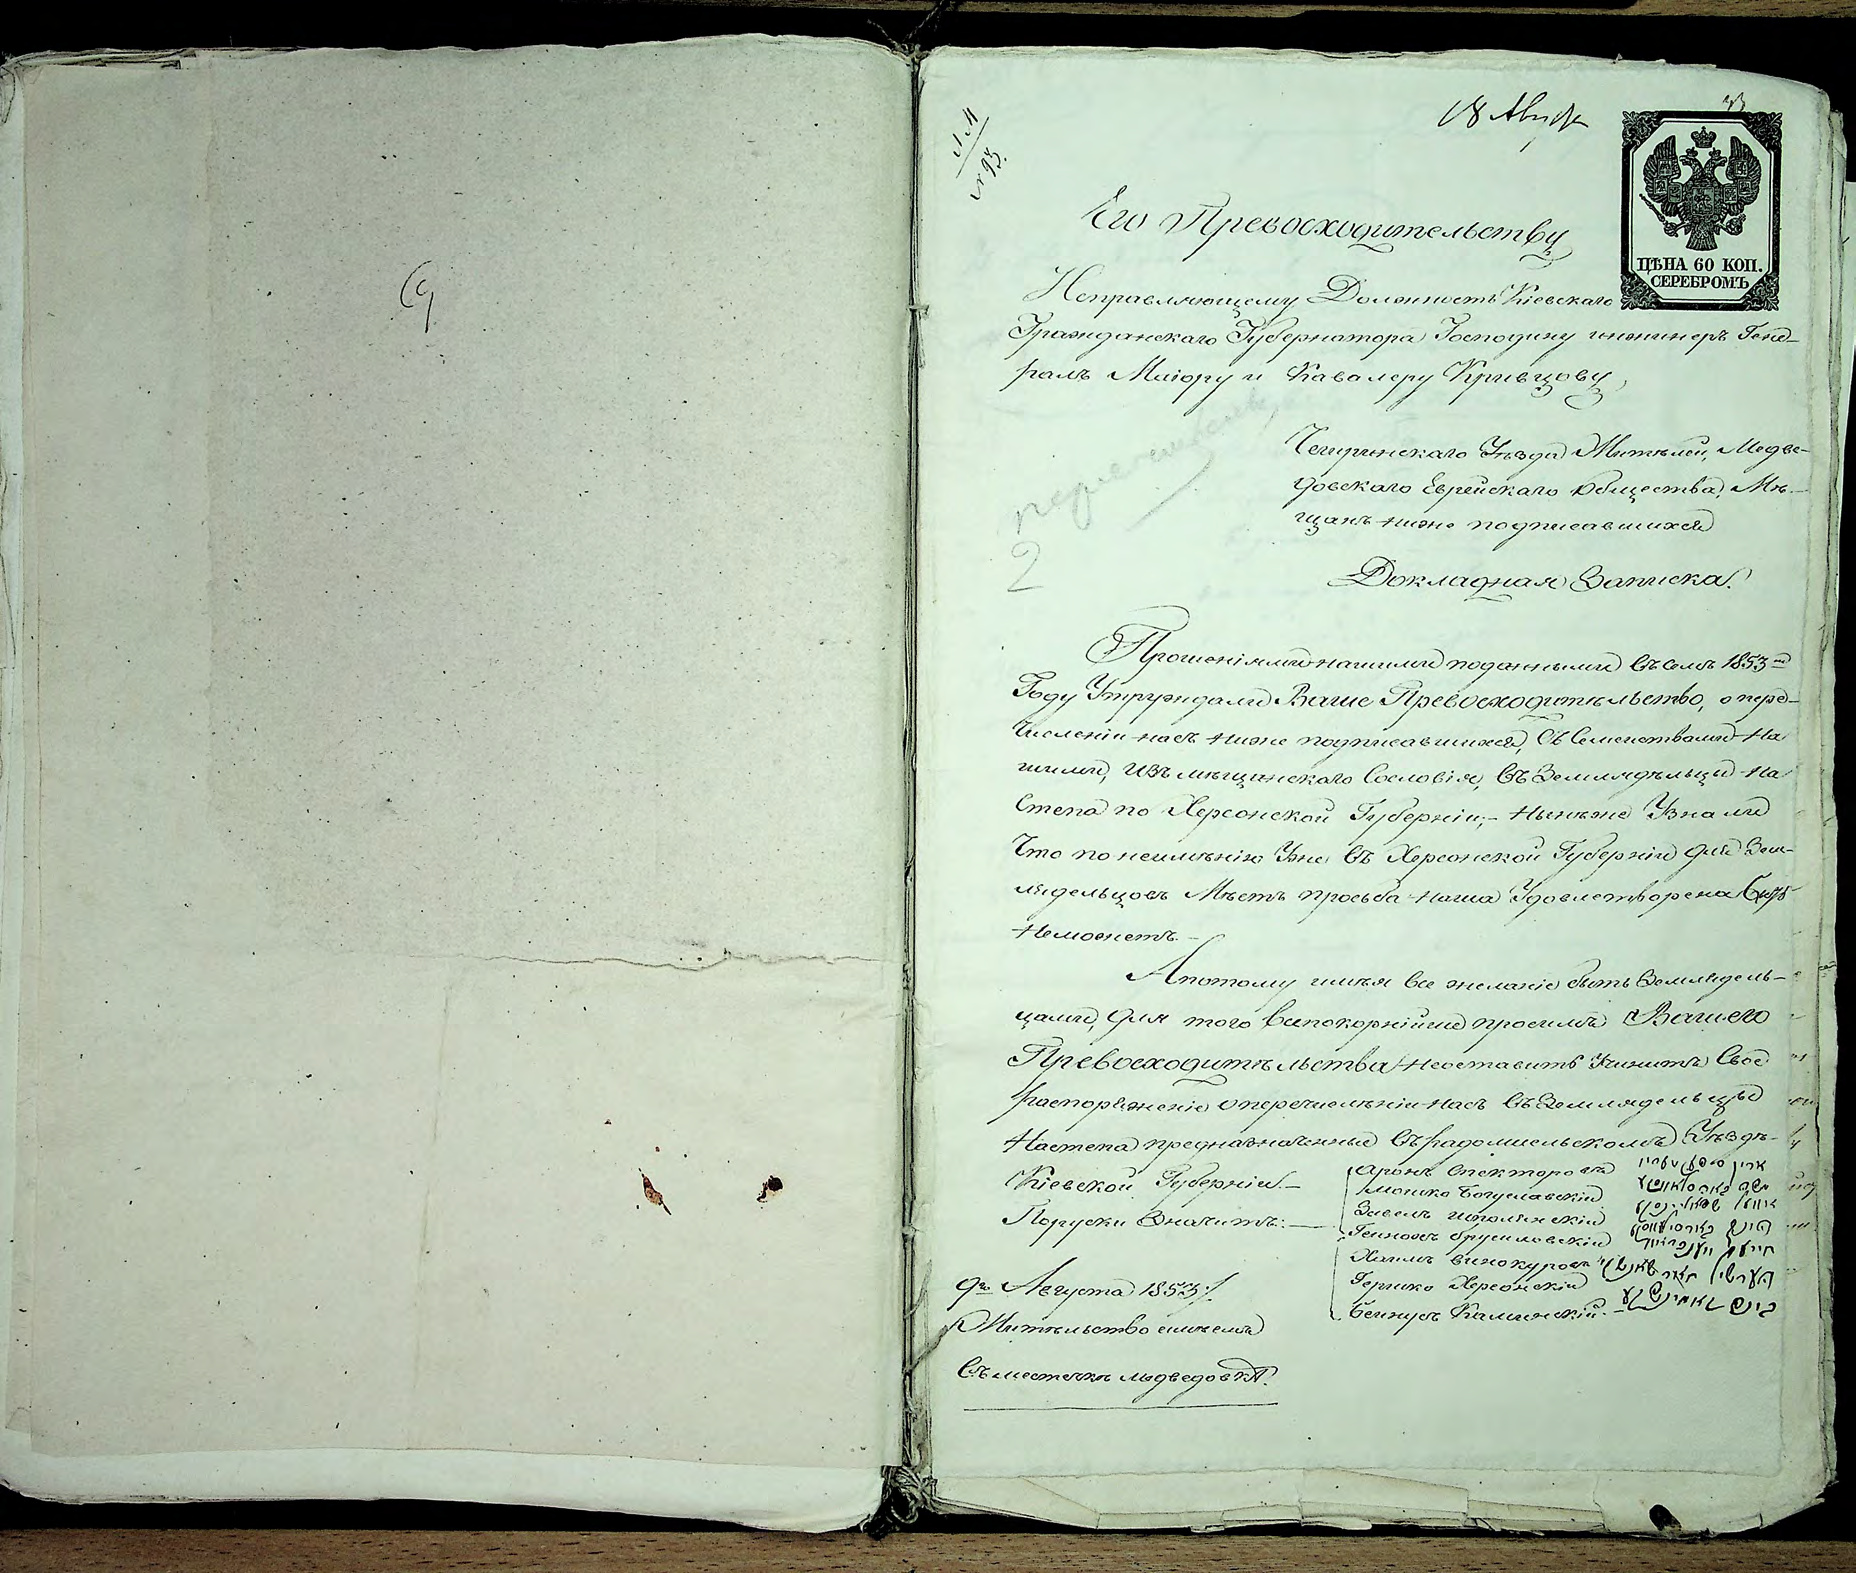 18 Августа
№ 93.
ЦѢНА 60 КОП.
СЕРЕБРОМЪ
Его Превосходительству
Исправляющему Должность Кіевскаго
Гражданскаго Губернатора Господину инжинеръ Гене-
ралъ Маіору и Кавалеру Кривцову,
Чегиринскаго Уѣзда Жителей, Медве-
довскаго Еврейскаго Общества, Мѣ-
щанъ ниже подписавшихся
2
Докладная Записка.
Прошеніями нашими поданными въ семъ 1853 м
Году Утруждали Ваше Превосходитѣльство, о пере-
численіи насъ ниже подписавшихся, съ Семействами на
шими, изъ мѣщанскаго Сословія, въ Землядѣльцы на
Степа по Херсонской Губерніи;- нынѣже Узнали
Что по неимѣнію Уже въ Херсонской Губерніи для Зем-
лядельцовъ Мѣстъ просьба наша Удовлетворена быть
неможетъ.-
А потому имѣя все желаніе быть Землядель-
цами, для того Всепокорнійше просимъ Вашего
Превосходитѣльства неоставить Учинить Свое
распоряженіе о перечисленіи насъ въ Землядельцы
на степа предназначенные въ Радомисльскомъ Уѣздѣ-
Кіевской Губерніи.-
Аронъ Спекторовъ
Мошко Богуславскій
Порукы Значитъ:-
Завель Шполянскій
Генохъ Брусиловскій
Хаимъ Винокуровъ
9го Августа 1853 г.
Гершко Херсонскій
Бейнусъ Каминскій.-
Жительство имѣемъ
Въ местечкѣ медведовкѣ.